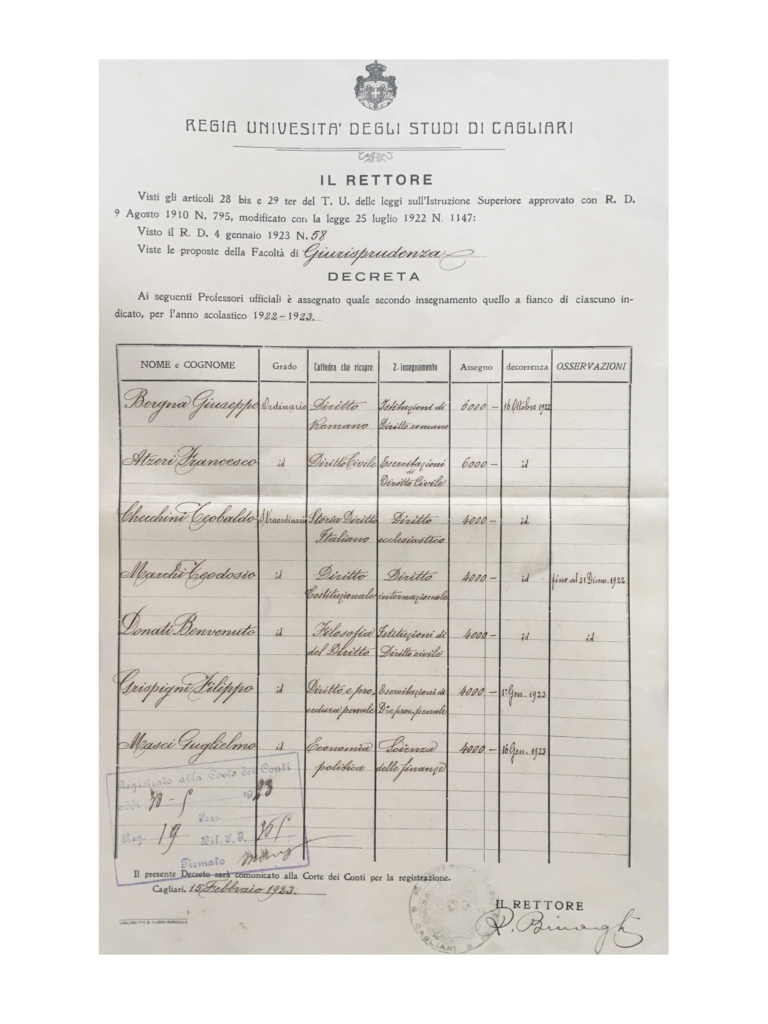 REGIA UNIVESITA' DEGLI STUDI DI CAGLIARI
IL RETTORE
Visti gli articoli 28 bis e 29 ter del T. U. delle leggi sull'Istruzione Superiore approvato con R. D.
9 Agosto 1910 N. 795, modificato con la legge 25 luglio 1922 N. 1147:
Visto il R. D. 4 gennaio 1923 N. 58
Viste le proposte della Facoltà di Giurisprudenza
DECRETA
Ai seguenti Professori ufficiali è assegnato quale secondo insegnamento quello a fianco di ciascuno in-
dicato, per l'anno scolastico 1922-1923.
NOME e COGNOME Grado Cattedra che ricopre 2. insegnamento Assegno decorrenza OSSERVAZIONI
Borgna Giuseppe Ordinario Diritto Istituzioni di 6000 - 16 Ottobre 1922
Romano Diritto romano
Atzeri Francesco id Diritto Civile Esercitazioni 6000 - id
di
Diritto Civile
Checchini Teobaldo Straordinario Storia Diritto Diritto 4000 - id
Italiano ecclesiastico
Marchi Teodosio id Diritto Diritto 4000 - id fino al 31 Dicem. 1922
Costituzionale internazionale
Donati Benvenuto id Filosofia Istituzioni di 4000 - id id
del Diritto Diritto civile
Grispigni Filippo id Diritto e pro- Esercitazioni di 4000 - 1° Gen. 1923
cedura penale D. e proc. penale
Masci Guglielmo id Economia Scienza 4000 - 16 Gen. 1923
politica delle finanze
Registrato alla Corte dei Conti
addì 1923
Reg. 19
Firmato
Il presente Decreto sarà comunicato alla Corte dei Conti per la registrazione.
Cagliari. 15 Febbraio 1923.
IL RETTORE
R. Binaghi
CAGLIARI